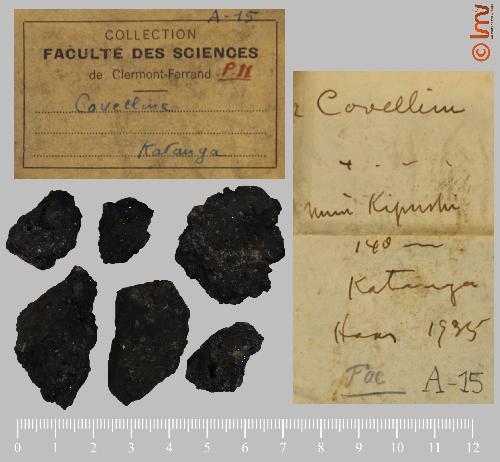 A-15
COLLECTION
FACULTÉ DES SCIENCES
de Clermont-Ferrand P.11
Covelline
Katanga
Covellin
Kipushi
140 —
Katanga
Haas 1935
Fac A-15
0 1 2 3 4 5 6 7 8 9 10 11 12
lmv